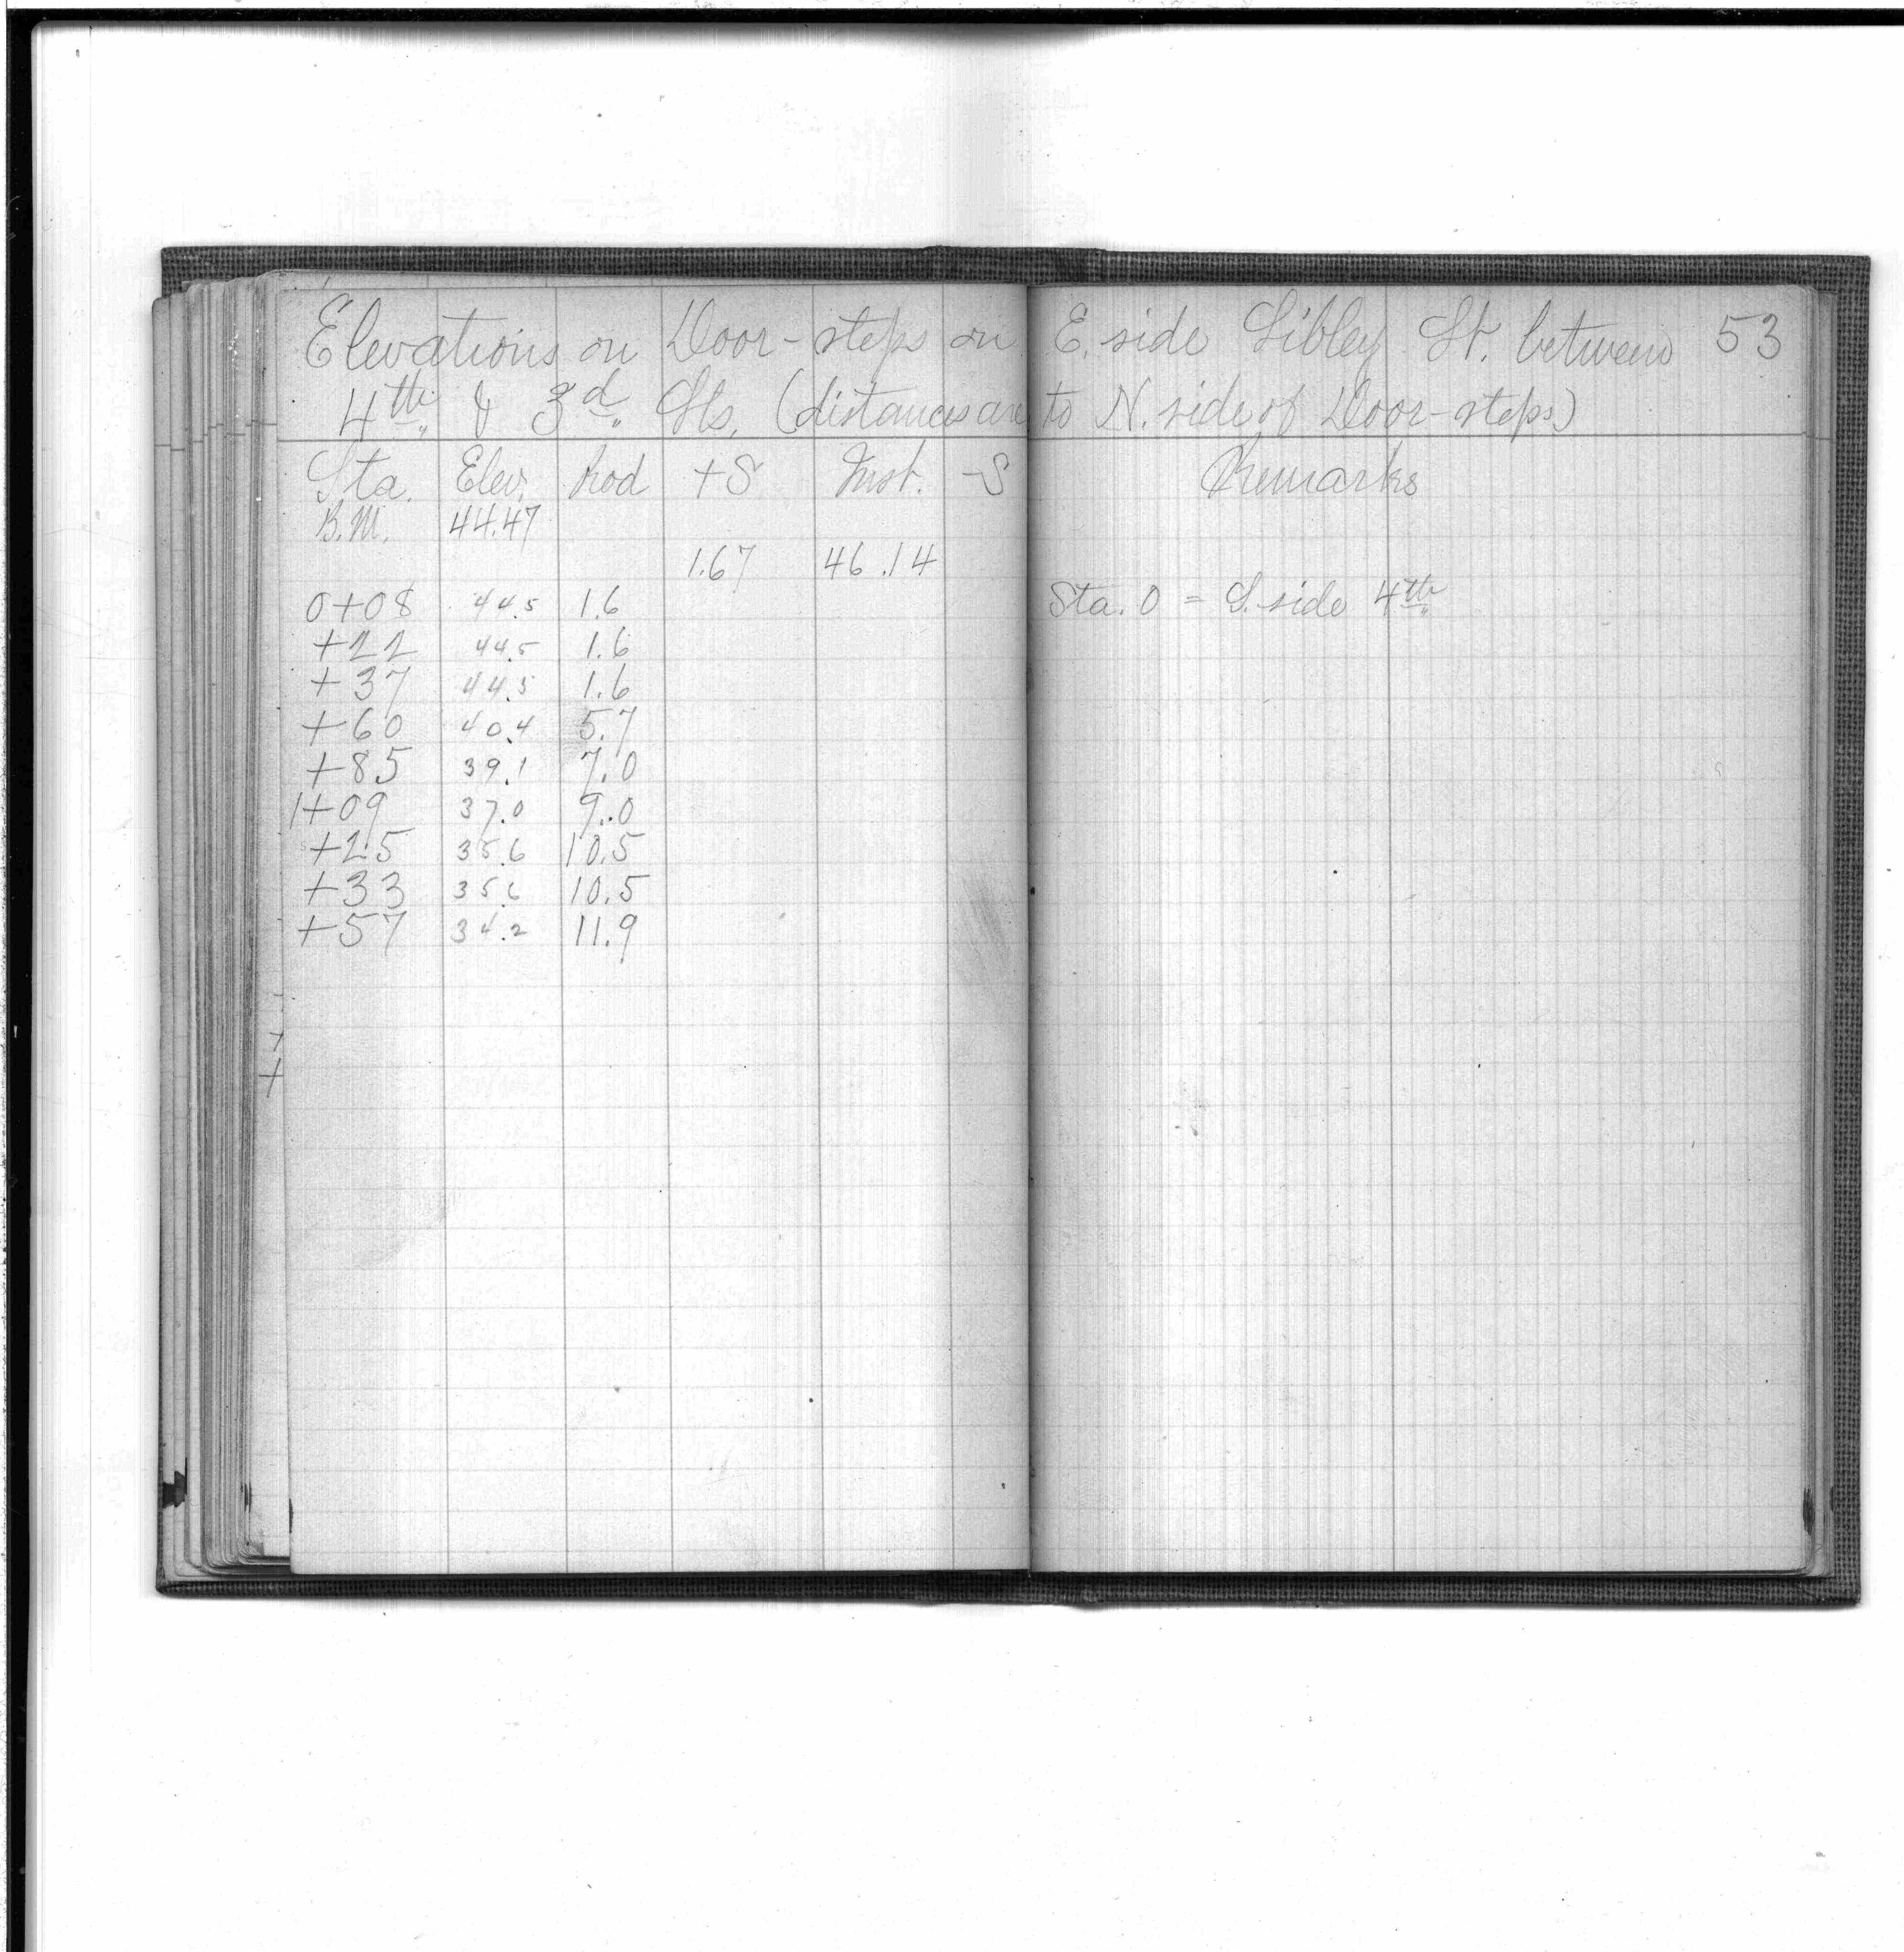 Elevations on Door-steps on E. side Sibley St. between 53
4th & 3d Sts. (distances are to N. side of Door-steps)
Sta. Elev. Rod +S Inst. -S Remarks
B.M. 44.47
1.67 46.14
0+08 44.5 1.6 Sta. 0 = S. side 4th
+22 44.5 1.6
+37 44.5 1.6
+60 40.4 5.7
+85 39.1 7.0
1+09 37.0 9.0
+25 35.6 10.5
+33 35.6 10.5
+57 34.2 11.9